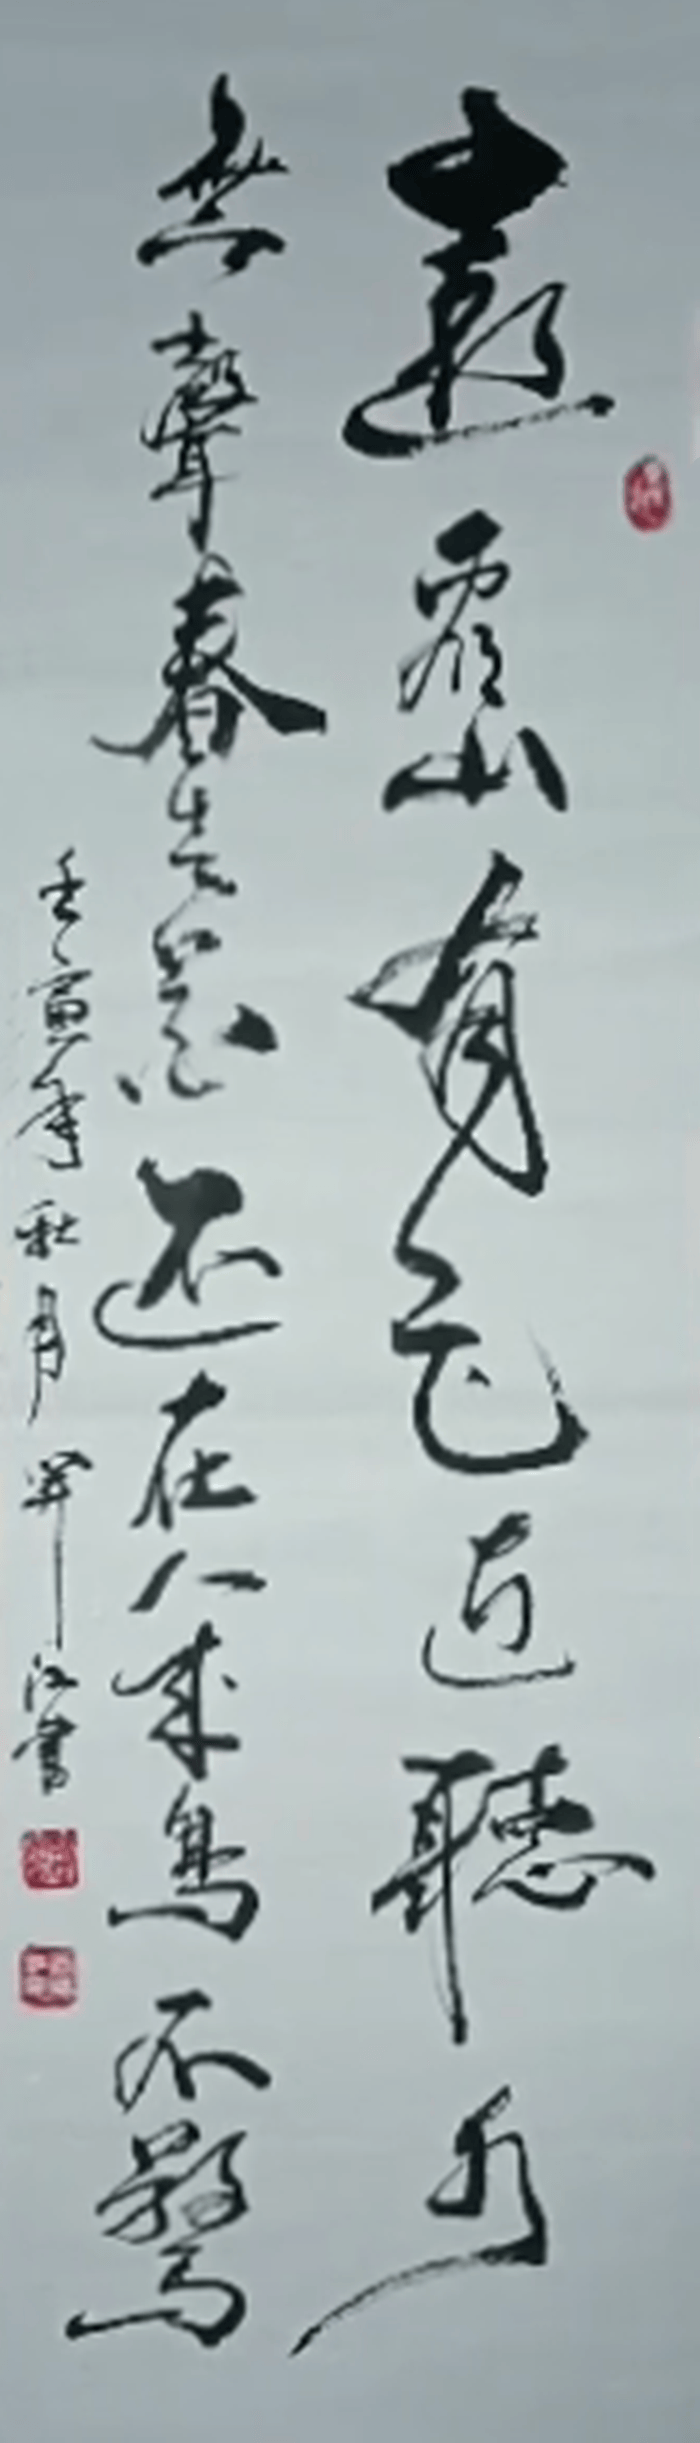 遠觀山有色近聽水
無聲春去花還在人來鳥不驚
壬寅年秋月江書